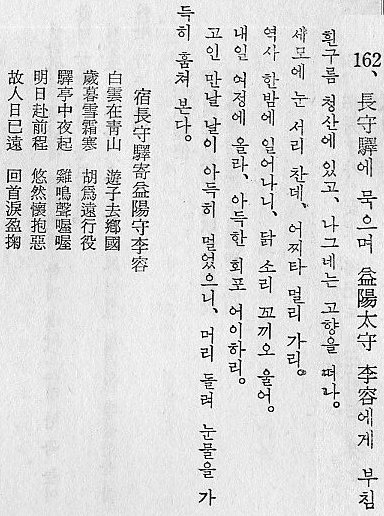 162、長守驛에 묵으며 益陽太守 李容에게 부침
흰구름 청산에 있고, 나그네는 고향을 떠나。
세모에 눈 서리 찬데, 어찌타 멀리 가리。
역사 한밤에 일어나니, 닭 소리 꼬끼오 울어。
내일 여정에 올라, 아득한 회포 어이하리。
고인 만날 날이 아득히 멀었으니, 머리 돌려 눈물을 가
득히 훔쳐 본다。
宿長守驛寄益陽守李容
白雲在靑山 遊子去鄕國
歲暮雪霜寒 胡爲遠行役
驛亭中夜起 雞鳴聲喔喔
明日赴前程 悠然懷抱惡
故人日已遠 回首淚盈掬